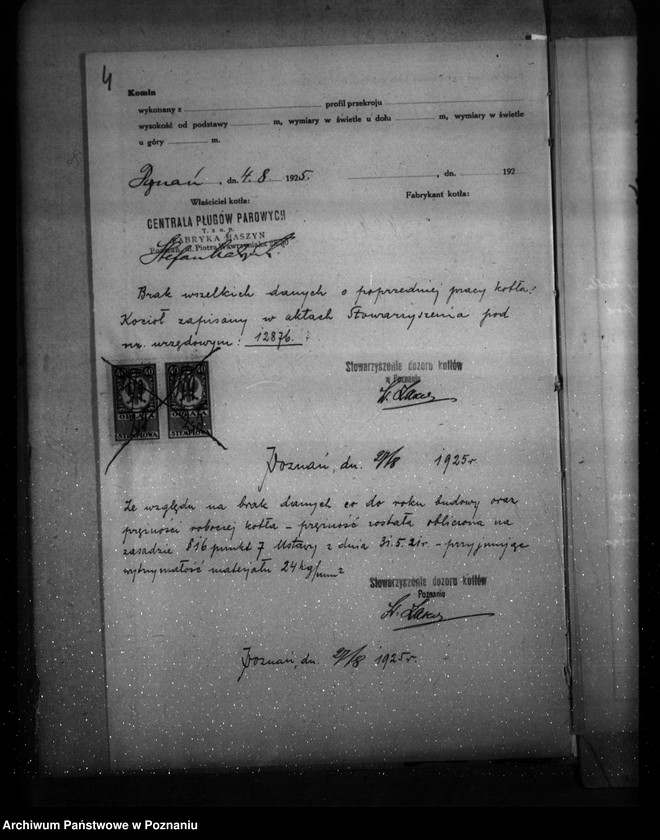 4
Komin
wykonany z profil przekroju
wysokość od podstawy m, wymiary w świetle u dołu m, wymiary w świetle
u góry m.
Poznań, dn. 4.8. 1925. , dn. 192
Właściciel kotła: Fabrykant kotła:
CENTRALA PŁUGÓW PAROWYCH
T. z o. p.
FABRYKA MASZYN
Poznań, ul. Piotra Wawrzyniaka
Brak wszelkich danych o poprzedniej pracy kotła.
Kocioł zapisany w aktach Stowarzyszenia pod
nr. urzędowym: 12876.
Stowarzyszenie dozoru kotłów
w Poznaniu
40 40 40 40
OPŁATA OPŁATA
STEMPLOWA STEMPLOWA
Poznań, dn. 27/8 1925 r.
Ze względu na brak danych co do roku budowy oraz
prężności roboczej kotła – prężność została obliczona na
zasadzie § 16 punkt 7 Ustawy z dnia 31.5.21r. – przyjmując
wytrzymałość materjału 24 kg/mm2
Stowarzyszenie dozoru kotłów
Poznaniu
Poznań, dn. 27/8 1925 r.
Archiwum Państwowe w Poznaniu